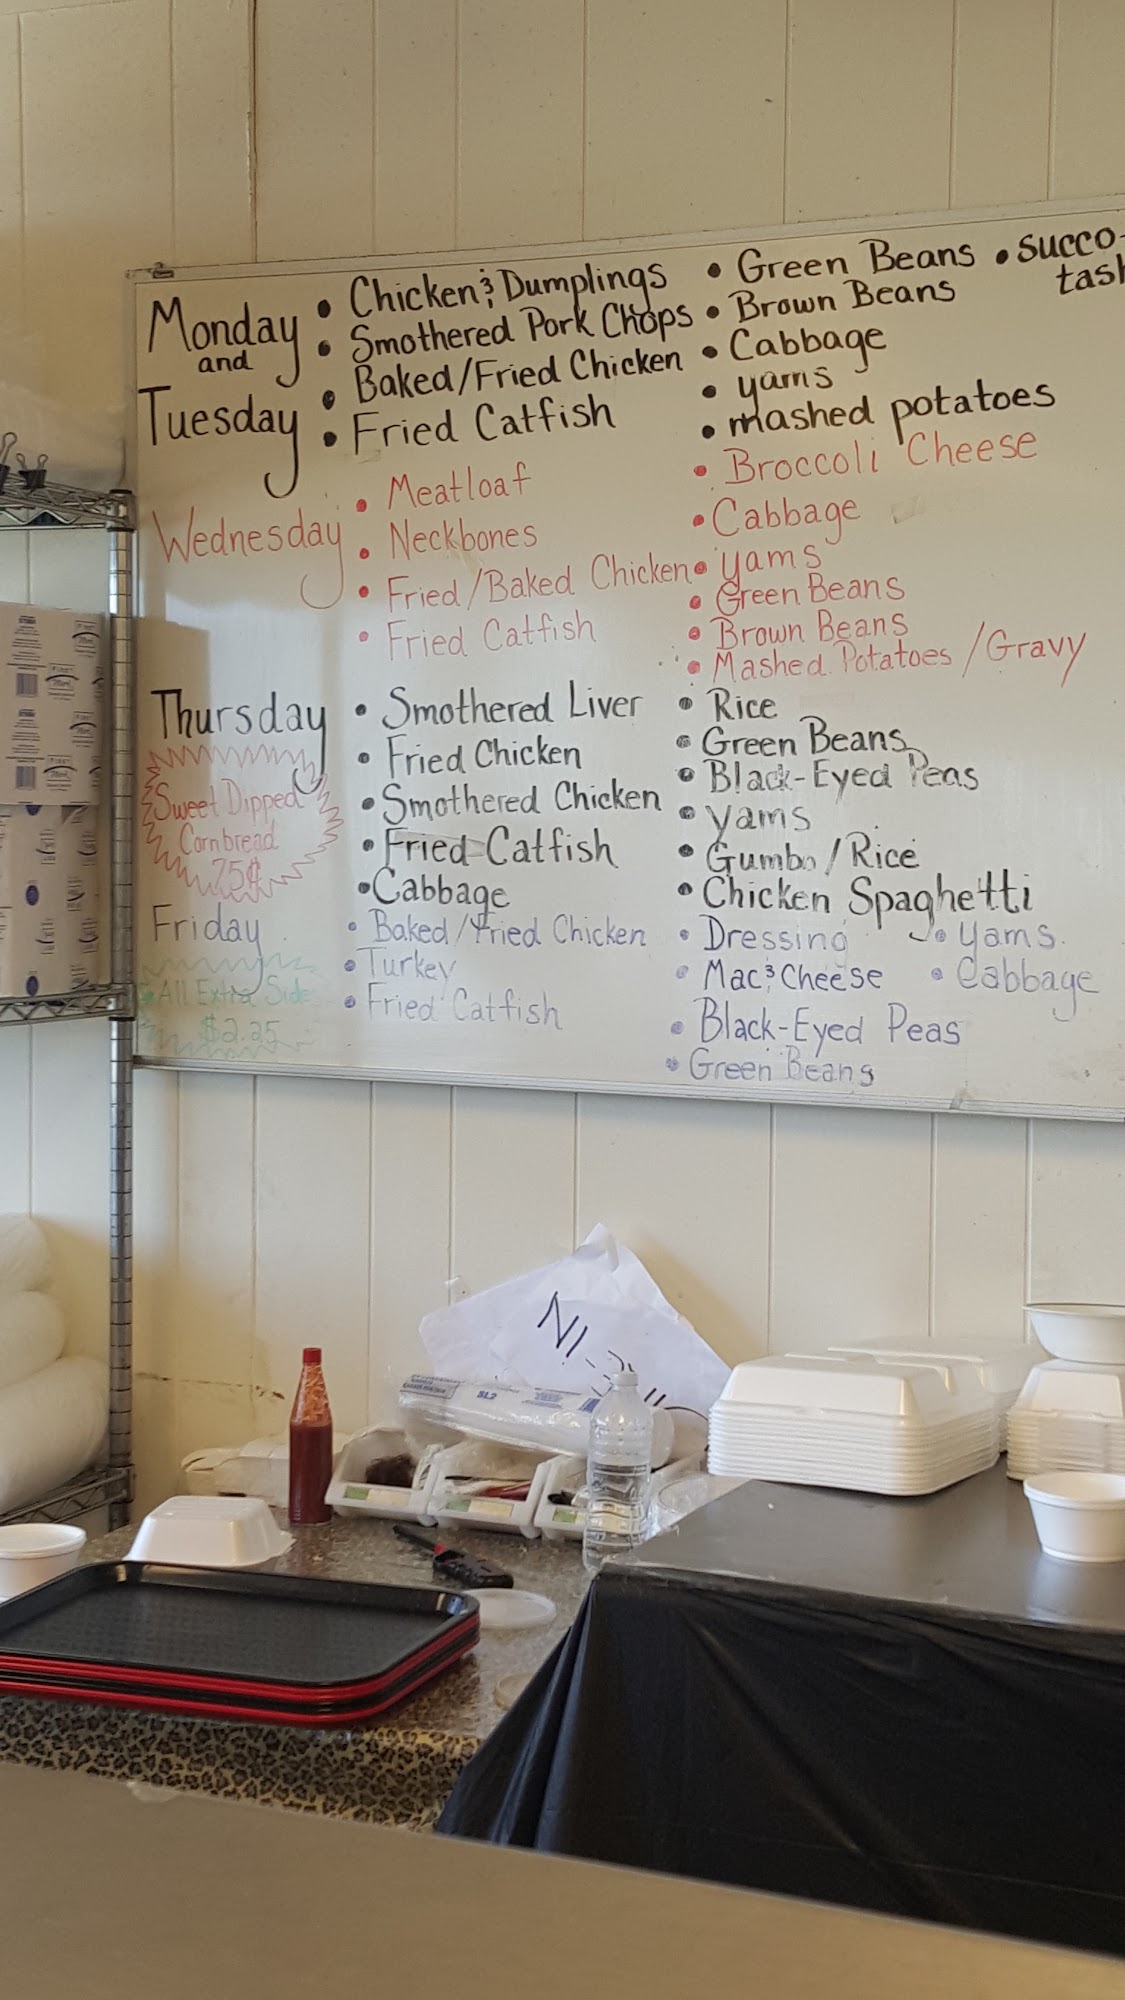 Monday
and
Tuesday
• Chicken & Dumplings
• Smothered Pork Chops
• Baked/Fried Chicken
• Fried Catfish
• Green Beans
• Brown Beans
• Cabbage
• yams
• mashed potatoes
• succo-
tash
Wednesday
• Meatloaf
• Neckbones
• Fried/Baked Chicken
• Fried Catfish
• Broccoli Cheese
• Cabbage
• yams
• Green Beans
• Brown Beans
• Mashed Potatoes/Gravy
Thursday
• Smothered Liver
• Fried Chicken
• Smothered Chicken
• Fried Catfish
• Cabbage
• Rice
• Green Beans
• Black-Eyed Peas
• yams
• Gumbo/Rice
• Chicken Spaghetti
Sweet Dipped
Cornbread
75¢
Friday
• Baked/Fried Chicken
• Turkey
• Fried Catfish
• Dressing
• Mac & Cheese
• Black-Eyed Peas
• Green Beans
• yams
• Cabbage
All Extra Side
$2.25
SL2